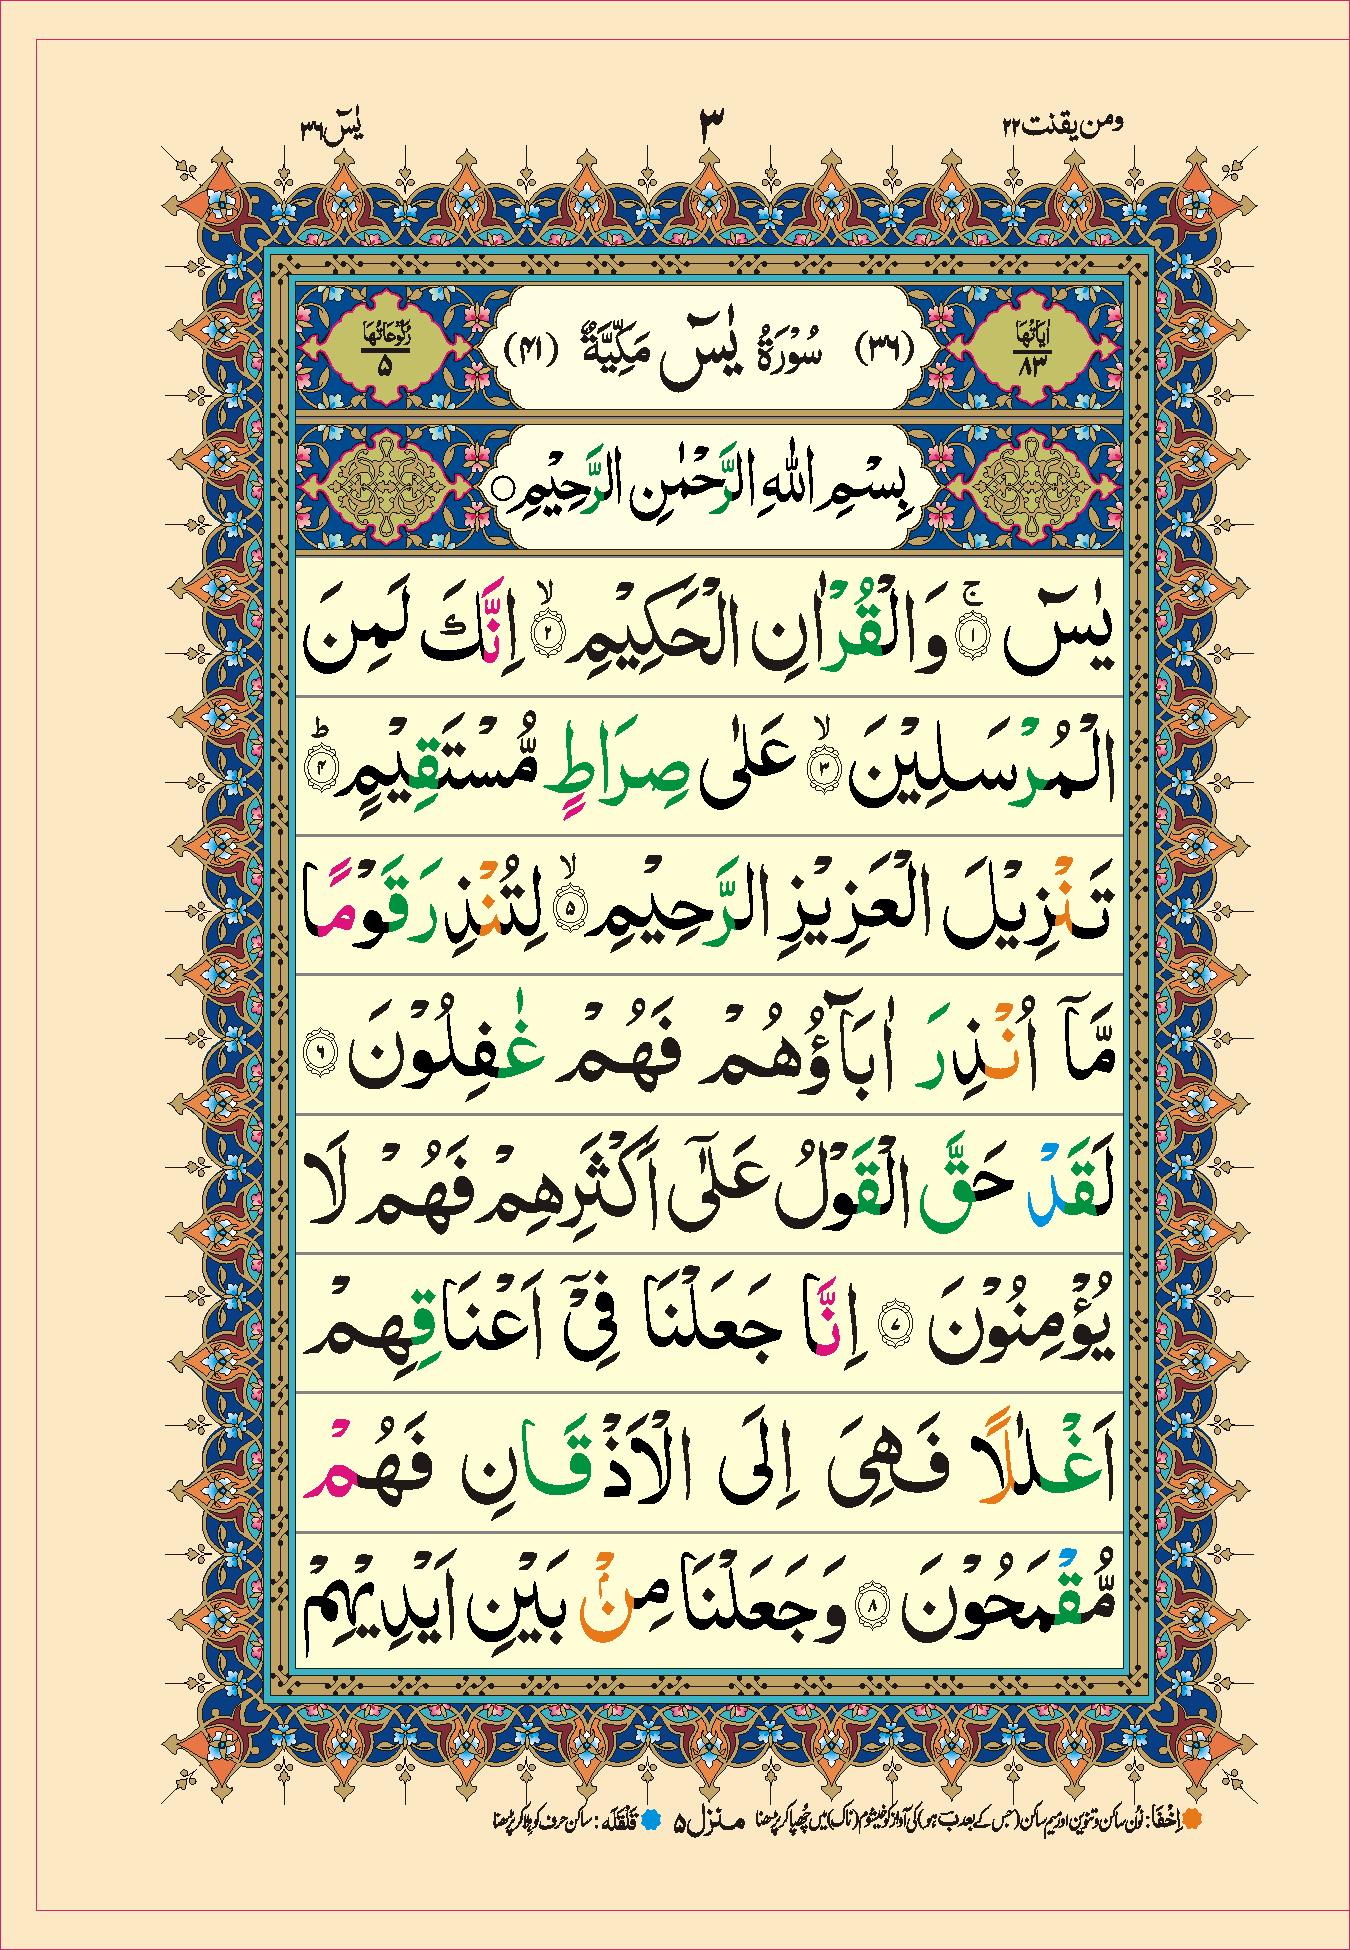 ومن يقنت ٢٢
٣
يٰسٓ ٣٦
اٰيَاتُهَا ٨٣
(٣٦) سُوْرَةُ يٰسٓ مَكِّيَّةٌ (٤١)
رُكُوْعَاتُهَا ٥
بِسْمِ اللّٰهِ الرَّحْمٰنِ الرَّحِيْمِ ○
يٰسٓ ۚ﴿١﴾ وَالْقُرْاٰنِ الْحَكِيْمِ ۙ﴿٢﴾ اِنَّكَ لَمِنَ
الْمُرْسَلِيْنَ ۙ﴿٣﴾ عَلٰى صِرَاطٍ مُّسْتَقِيْمٍ ؕ﴿٤﴾
تَنْزِيْلَ الْعَزِيْزِ الرَّحِيْمِ ۙ﴿٥﴾ لِتُنْذِرَ قَوْمًا
مَّاۤ اُنْذِرَ اٰبَآؤُهُمْ فَهُمْ غٰفِلُوْنَ ﴿٦﴾
لَقَدْ حَقَّ الْقَوْلُ عَلٰٓى اَكْثَرِهِمْ فَهُمْ لَا
يُؤْمِنُوْنَ ﴿٧﴾ اِنَّا جَعَلْنَا فِىْۤ اَعْنَاقِهِمْ
اَغْلٰلًا فَهِىَ اِلَى الْاَذْقَانِ فَهُمْ
مُّقْمَحُوْنَ ﴿٨﴾ وَجَعَلْنَا مِنْۢ بَيْنِ اَيْدِيْهِمْ
اِخْفَا: نُون ساکن و تنوین اور میم ساکن (جس کے بعد ب ہو) کی آواز کو خیشوم (ناک) میں چُھپا کر پڑھنا منزل ٥ قَلْقَلَه: ساکن حرف کو ہلا کر پڑھنا